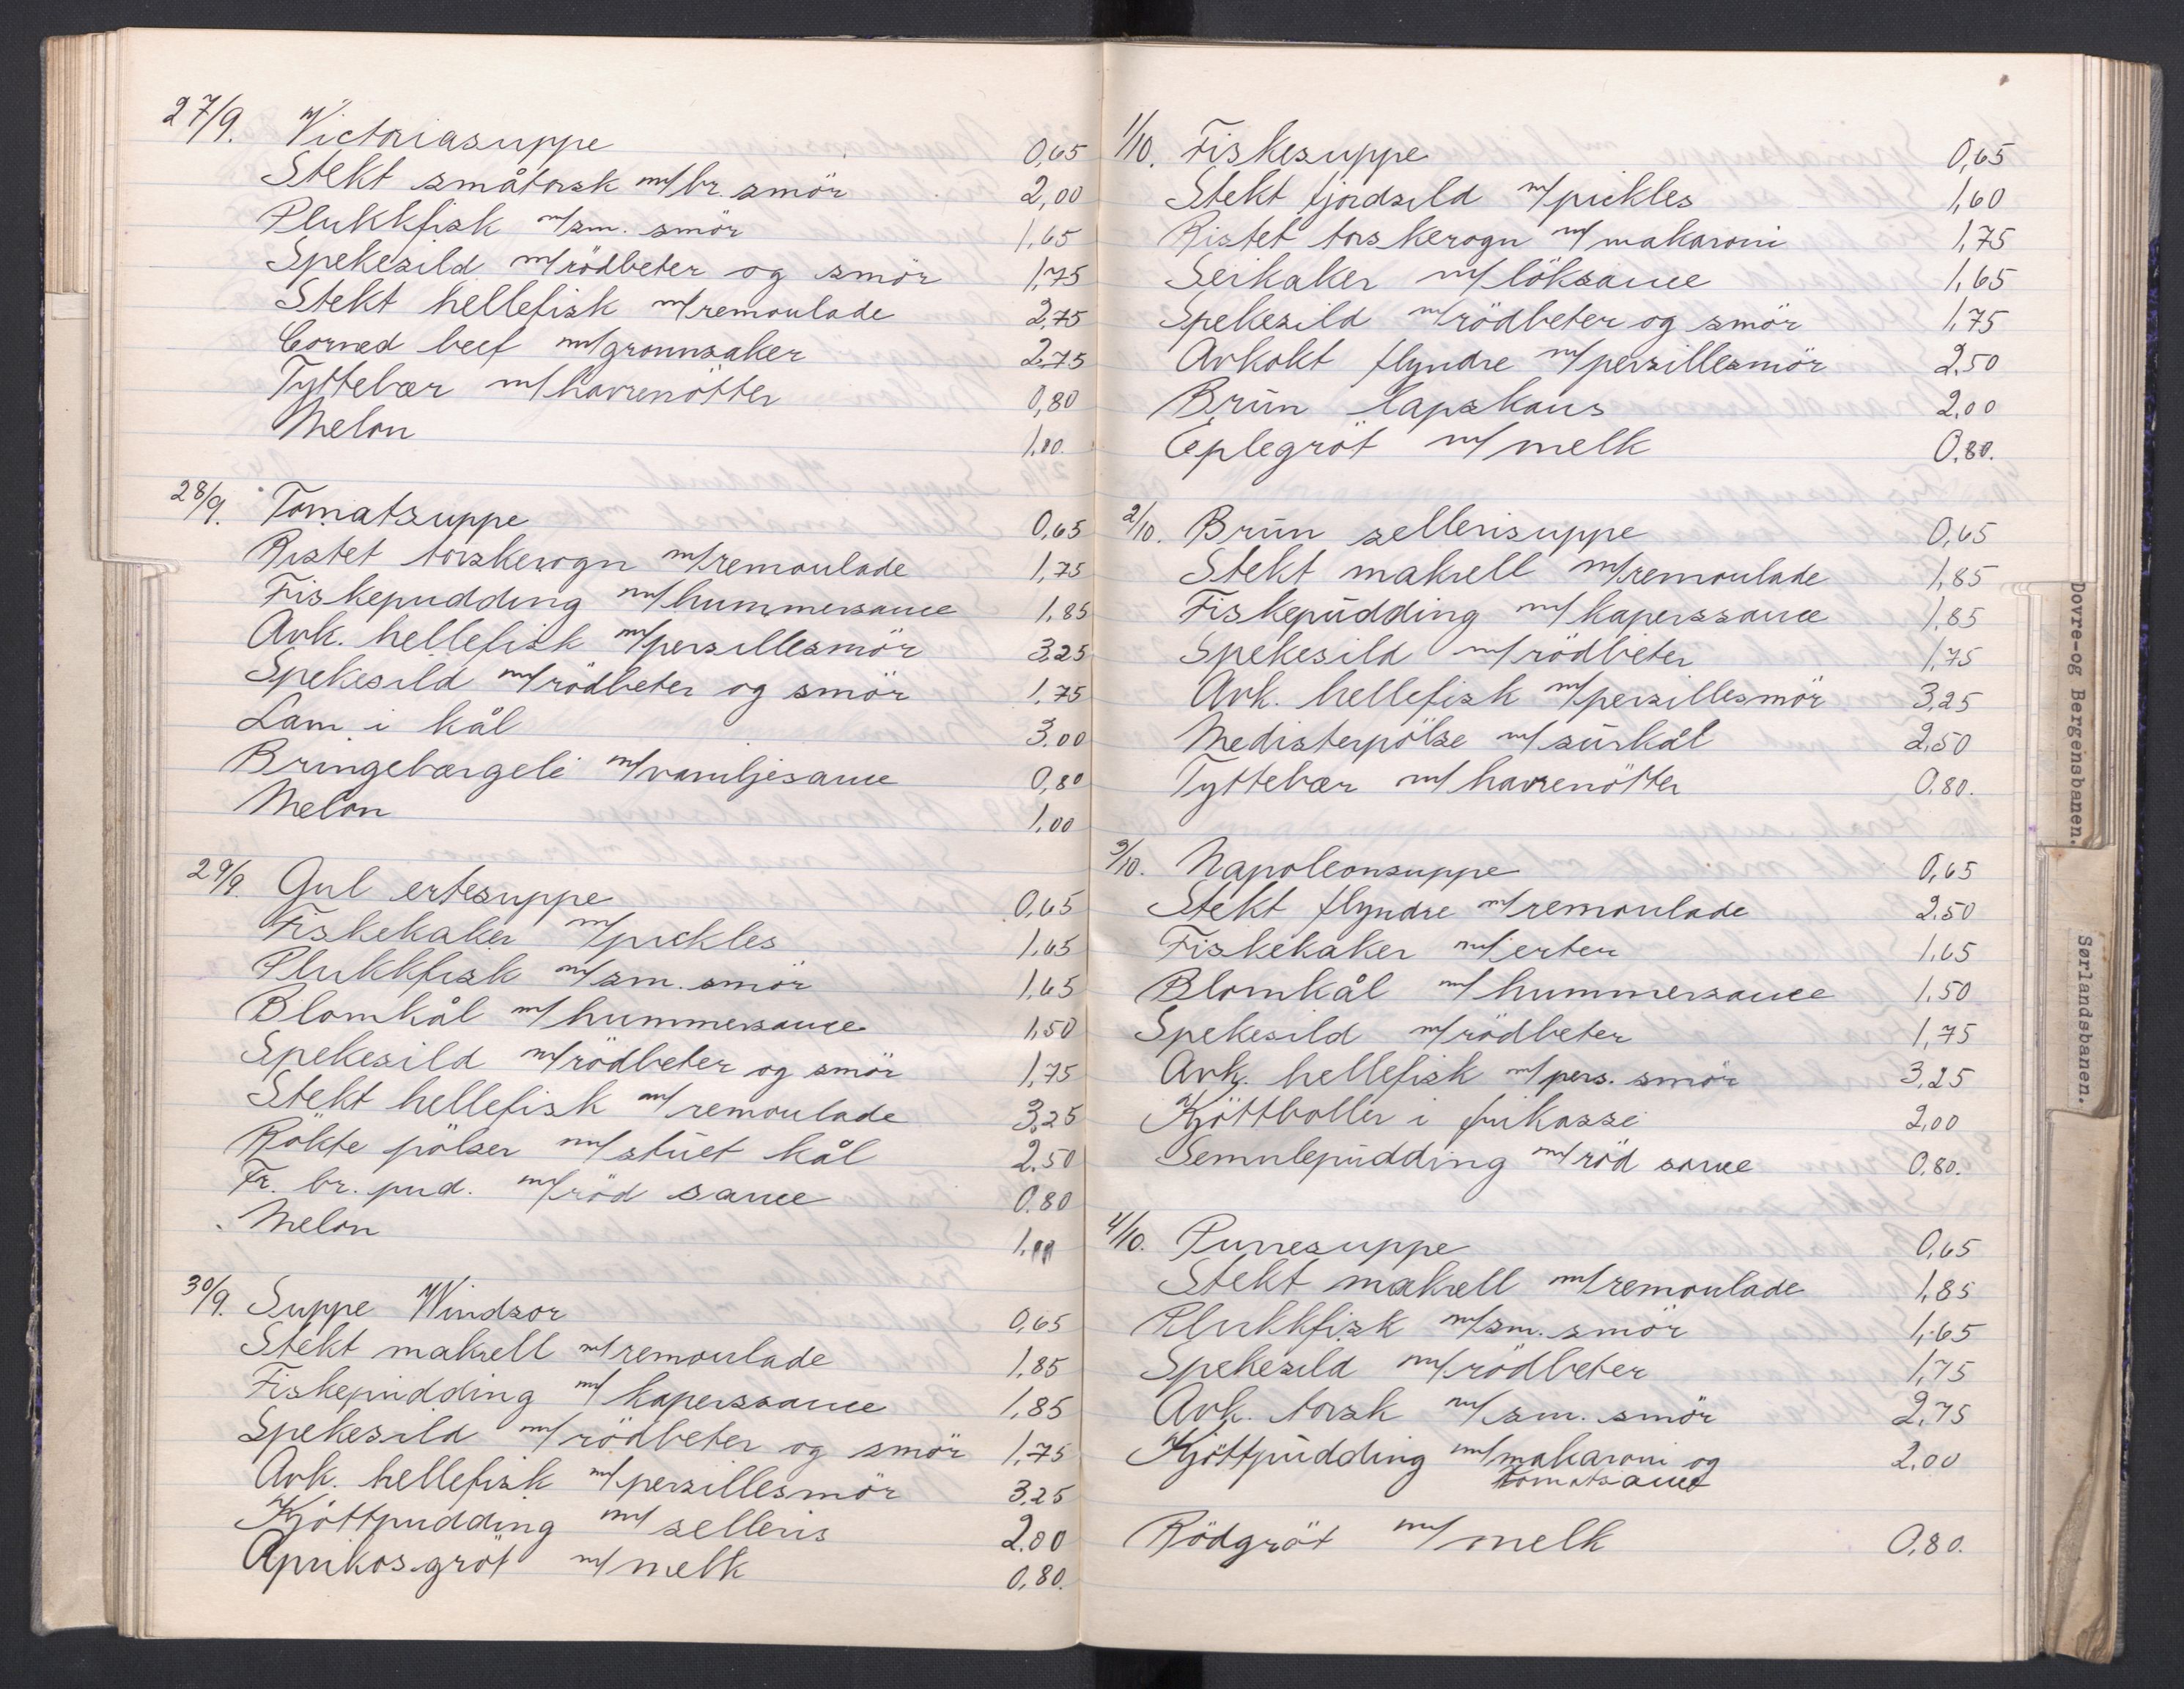 27/9. Victoriasuppe 0,65
Stekt småtorsk m/br. smör 2,00
Plukkfisk m/sm. smör 1,65
Spekesild m/rödbeter og smör 1,75
Stekt hellefisk m/remoulade 2,75
Corned beef m/grønnsaker 2,75
Tyttebær m/havrenötter 0,80
Melon 1,00.
28/9. Tomatsuppe 0,65
Ristet torskerogn m/remoulade 1,75
Fiskepudding m/hummersauce 1,85
Avk. hellefisk m/persillesmör 3,25
Spekesild m/rödbeter og smör 1,75
Lam i kål 3.00
Bringebærgele m/vaniljesauce 0,80
Melon 1,00
29/9. Gul ertesuppe 0,65
Fiskekaker m/pickles 1,65
Plukkfisk m/sm. smör 1,65
Blomkål m/hummersauce 1,50
Spekesild m/rödbeter og smör 1,75
Stekt hellefisk m/remoulade 3,25
Rökte pölser m/stuet kål 2,50
Fr. br. pud. m/röd sauce 0.80
Melon 1,00
30/9. Suppe Windsor 0,65
Stekt makrell m/remoulade 1,85
Fiskepudding m/kaperssauce 1,85
Spekesild m/rödbeter og smör 1,75
Avk. hellefisk m/persillesmör 3,25
Kjöttpudding m/selleris 2.00
Aprikosgröt m/melk 0,80.
1/10. Fiskesuppe 0,65
Stekt fjordsild m/pickles 1,60
Ristet torskerogn m/makaroni 1,75
Seikaker m/löksauce 1,65
Spekesild m/rödbeter og smör 1,75
Avkokt flyndre m/persillesmör 2,50
Brun lapskaus 2,00
Eplegröt m/melk 0,80.
2/10. Brun sellerisuppe 0,65
Stekt makrell m/remoulade 1,85
Fiskepudding m/kaperssauce 1,85
Spekesild m/rödbeter 1,75
Avk. hellefisk m/persillesmör 3,25
Medisterpölse m/surkål 2,50
Tyttebær m/havrenötter 0.80.
3/10. Napoleonsuppe 0,65
Stekt flyndre m/remoulade 2.50
Fiskekaker m/erter 1,65
Blomkål m/hummersauce 1,50
Spekesild m/rödbeter 1,75
Avk. hellefisk m/pers. smör 3,25
Kjöttboller i frikasse 2,00
Semulepudding m/röd sauce 0,80.
4/10. Purresuppe 0,65
Stekt makrell m/remoulade 1,85
Plukkfisk m/sm. smör 1,65
Spekesild m/rödbeter 1,75
Avk. torsk m/sm. smör 2,75
Kjöttpudding m/makaroni og 2,00
tomatsauce
Rödgröt m/melk 0,80.
Dovre-og Bergensbanen.
Sørlandsbanen.